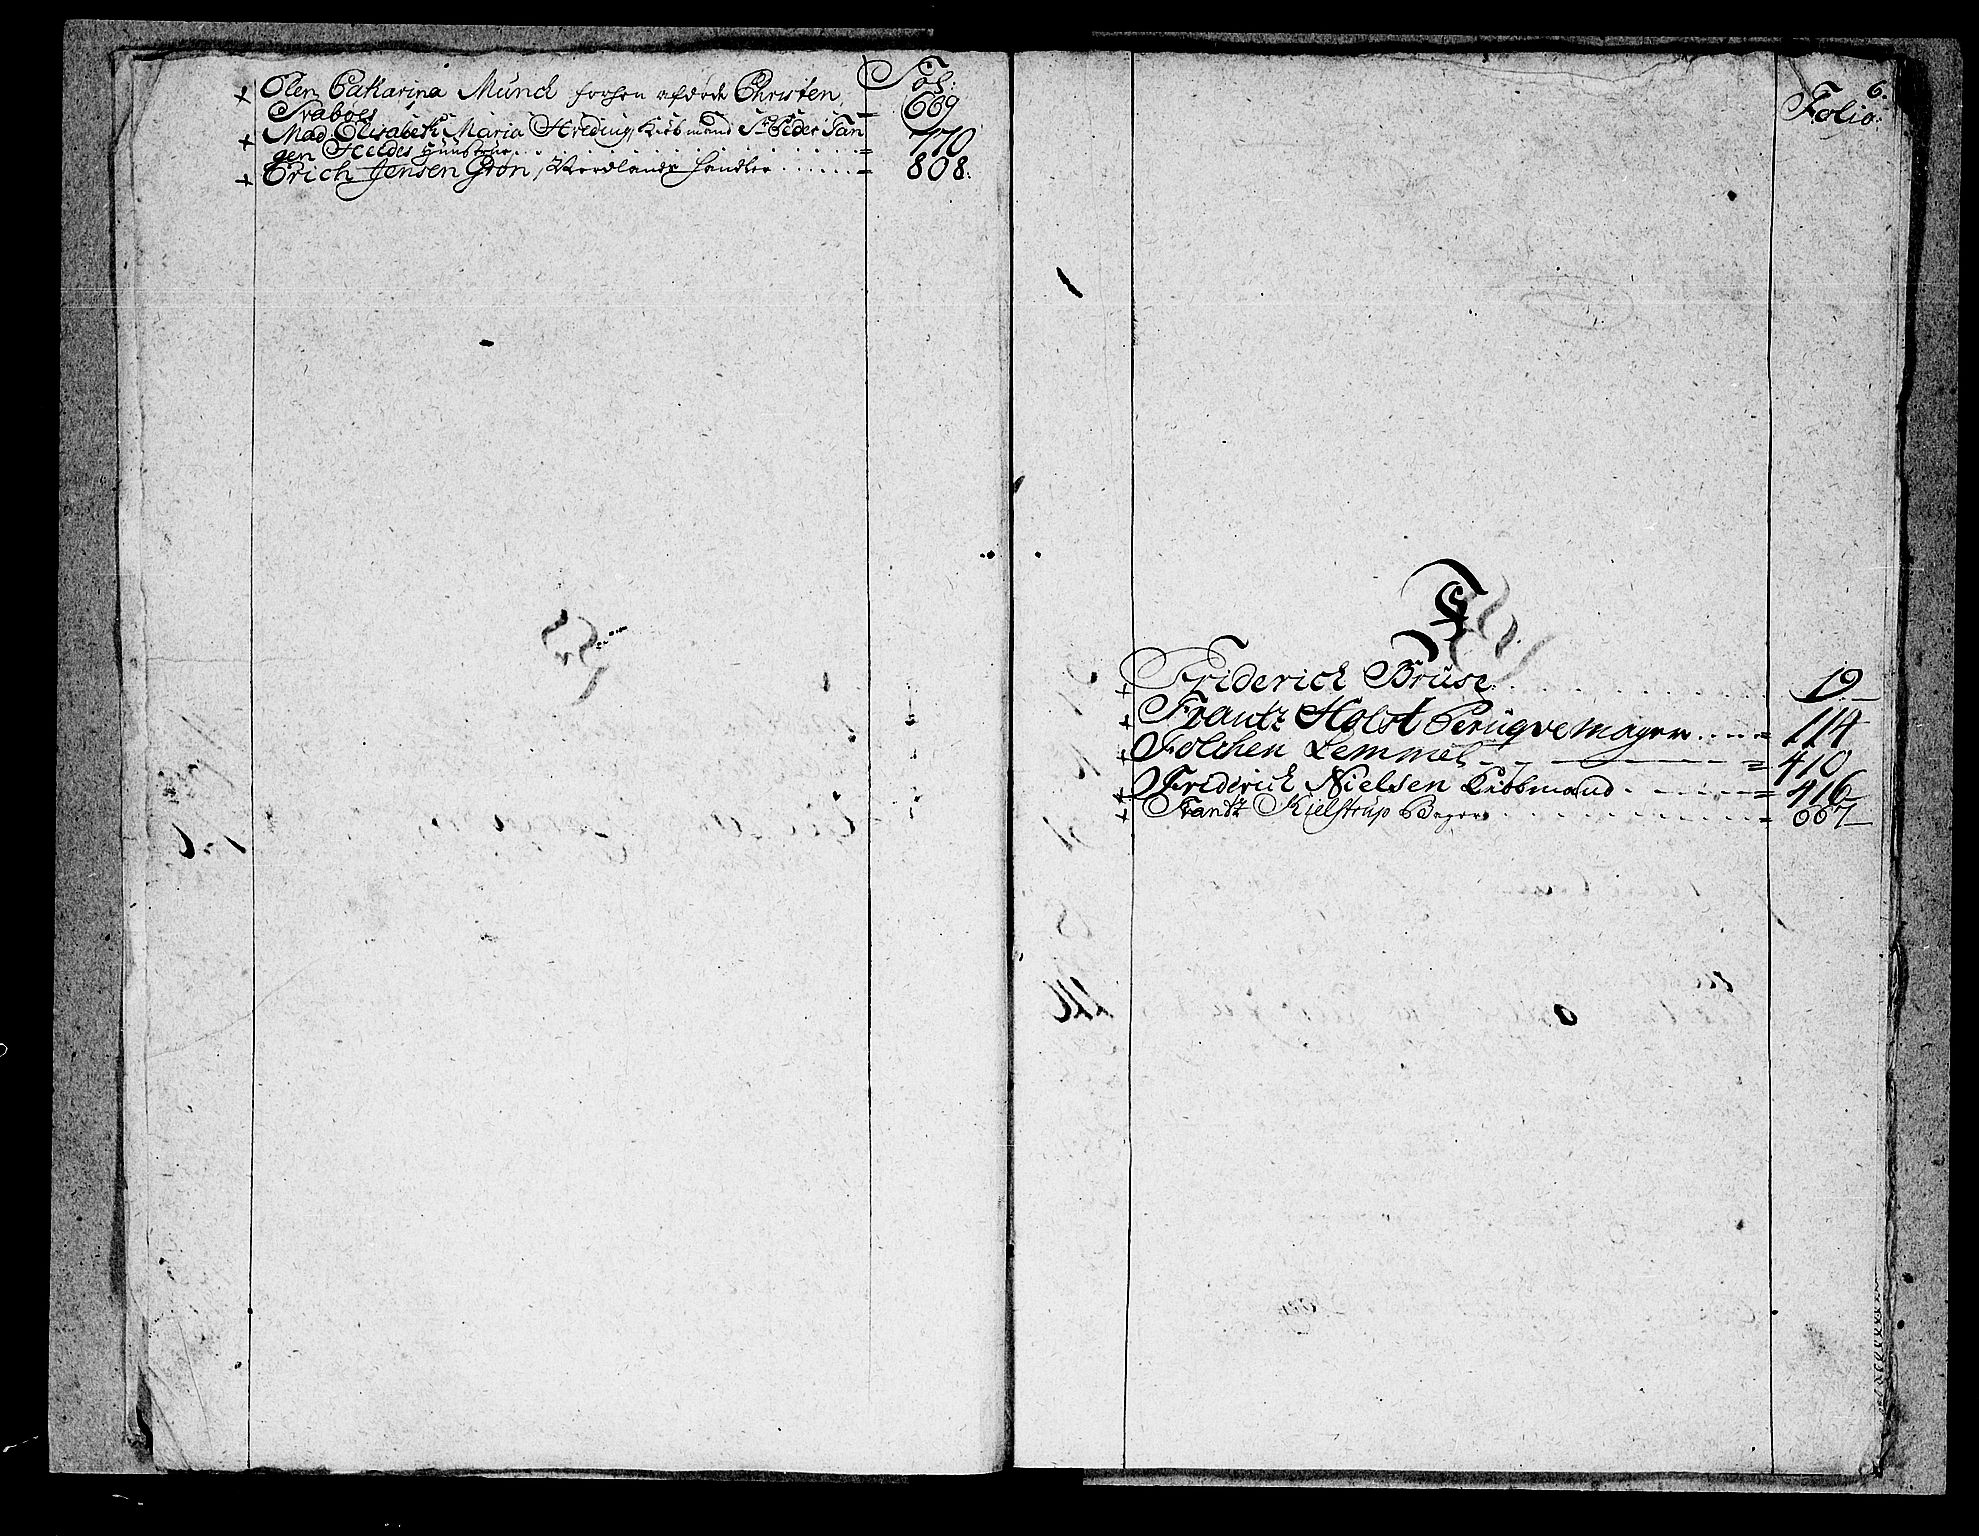 Fol:
Elen Catharina Münch forhen afdøde Christen
Svabøes = 669
Mad Elisabeth Maria Hreding, Kiøbmand Sr Peder Tan
gen Heldes Huustrue = 770
Erich Jensen Grøn, Nordlands handler = 808.
6.
Folio.
F
Friderich Brüse 19
Frantz Holst Perüqvemager = 114
Folchen Lemmel = 410
Friderich Nielsen Kiøbmand = 416
Frantz Kielstrup Bager = 667